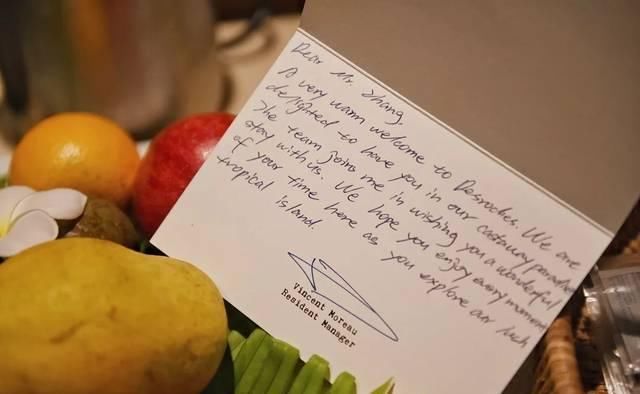 Dear Mr. Zhang,
A very warm welcome to Desroches. We are
delighted to have you in our castaway paradise.
The team joins me in wishing you a wonderful
stay with us. We hope you enjoy every moment
of your time here as you explore our lush
tropical island.
Vincent Moreau
Resident Manager